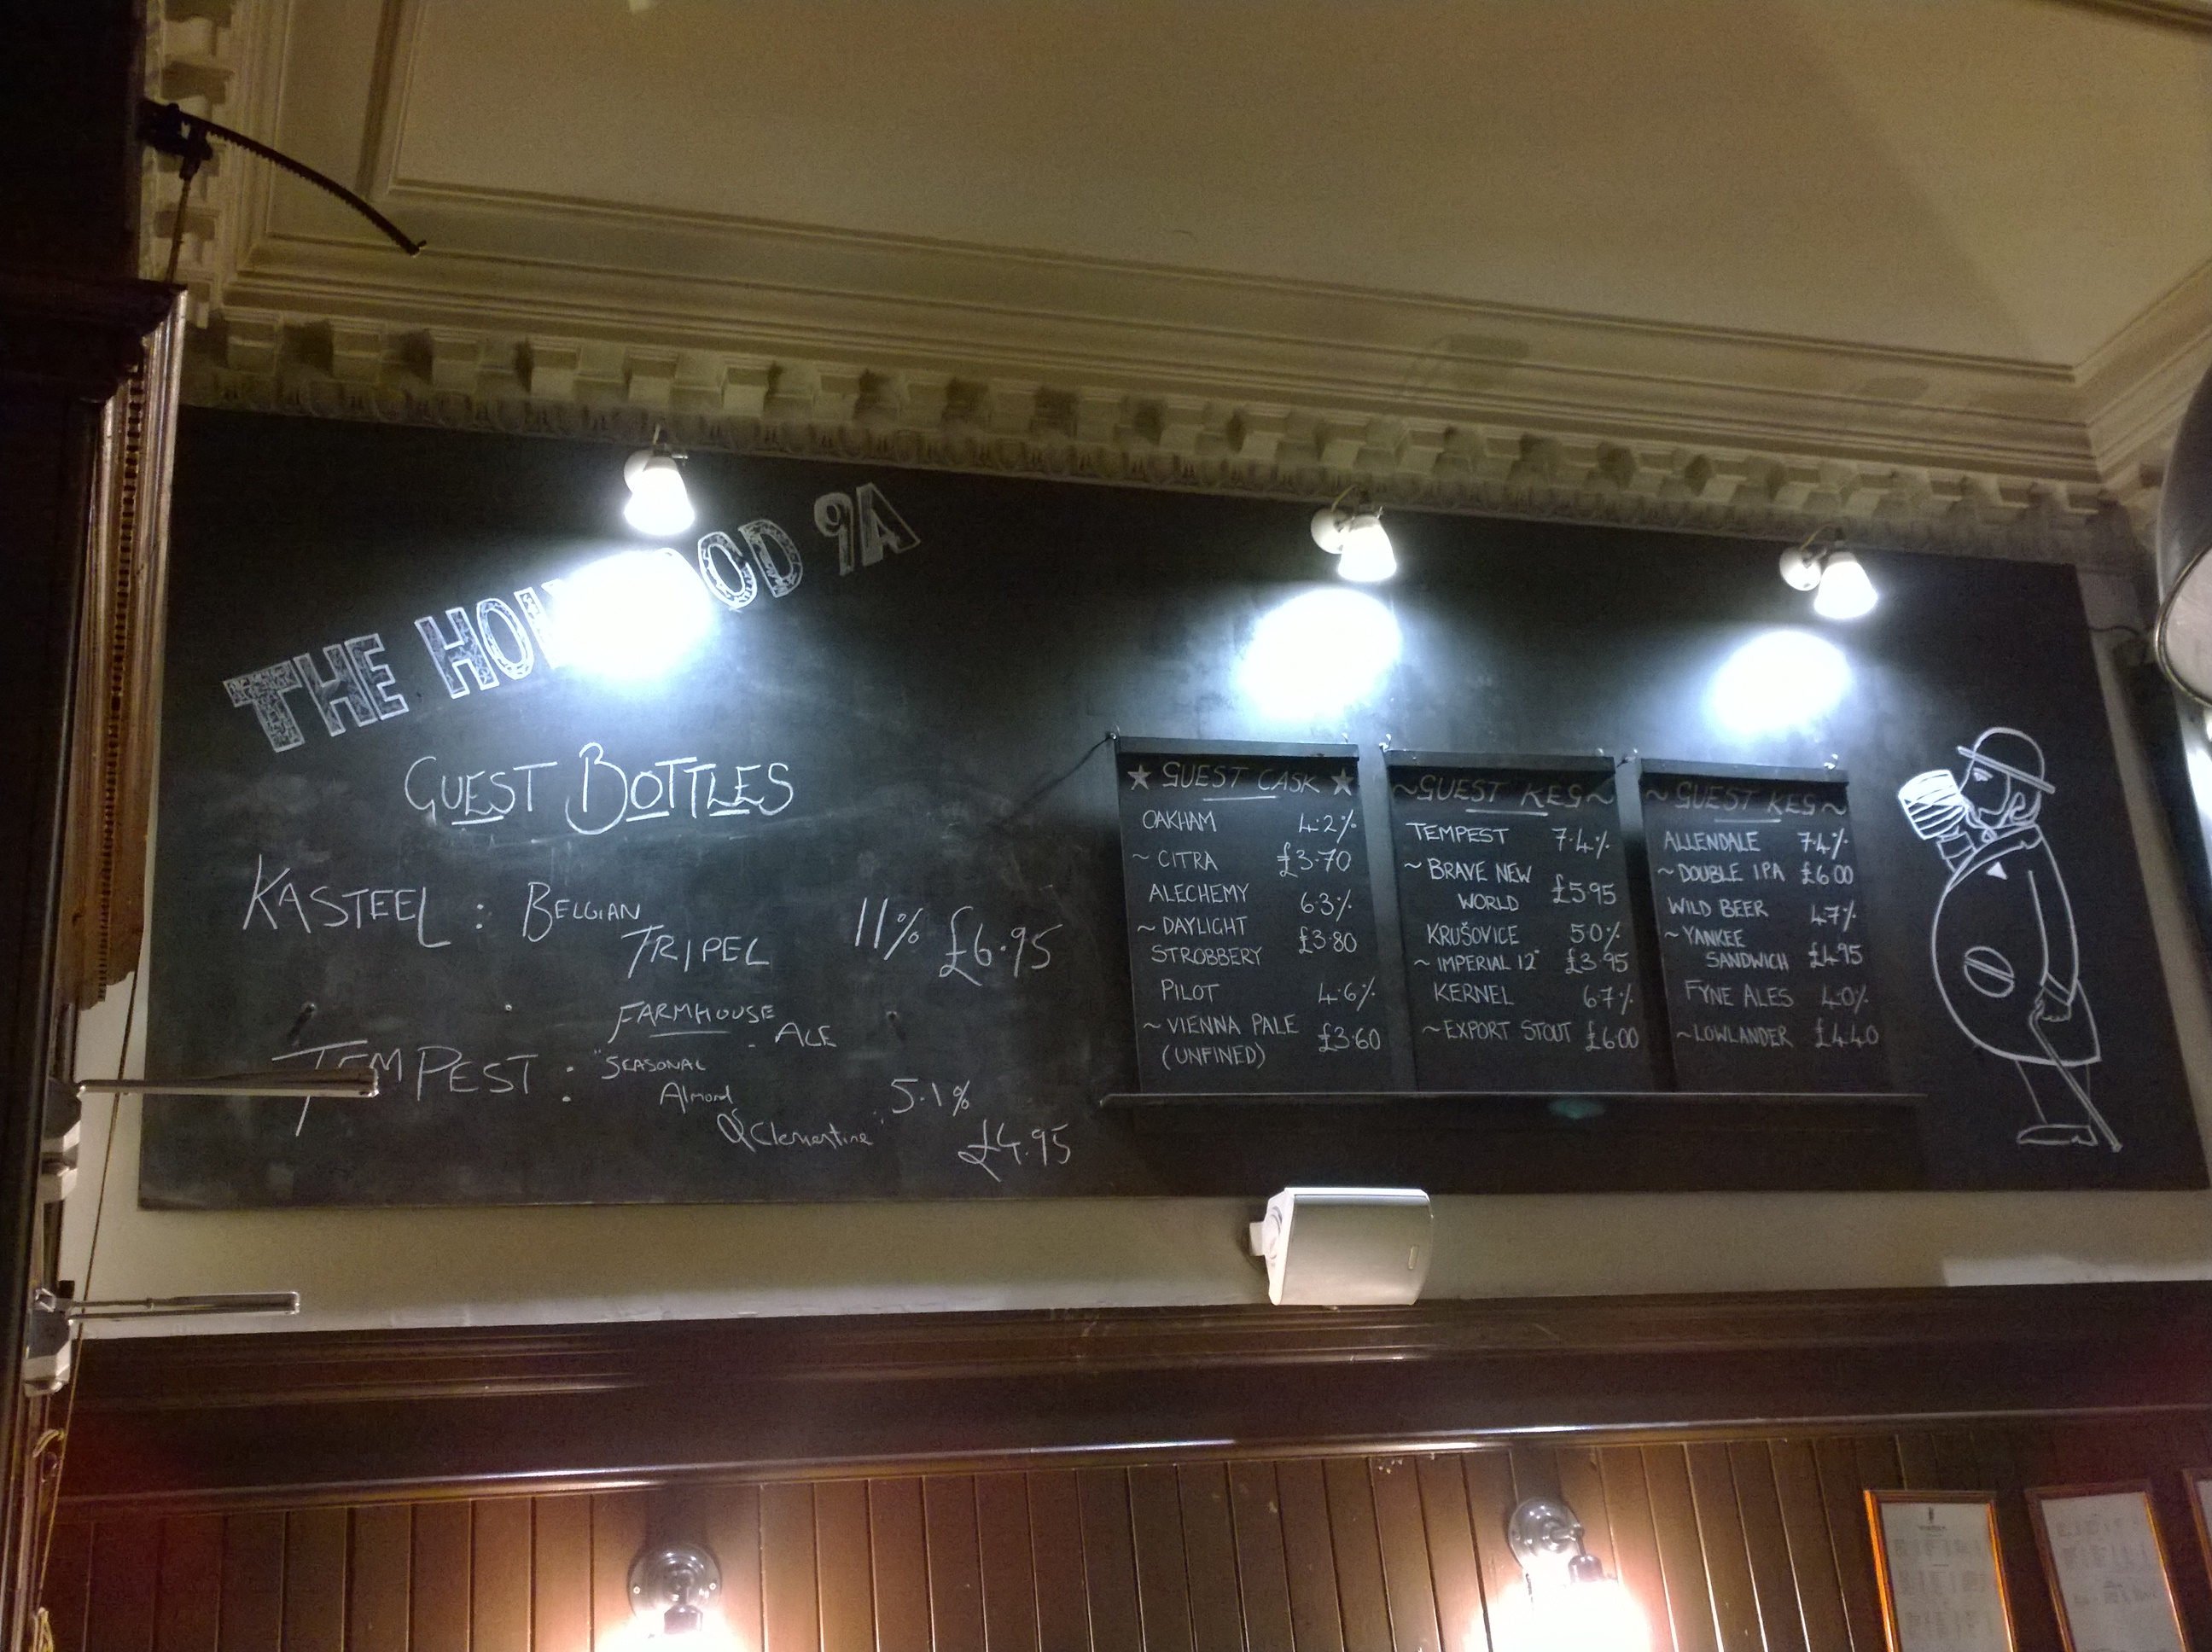 THE HO OD 9A
GUEST BOTTLES
KASTEEL : BELGIAN
TRIPEL 11% £6.95
FARMHOUSE
ALE
TEMPEST : "SEASONAL
Almond 5.1%
& Clementine"
£4.95
★ GUEST CASK ★
OAKHAM 4.2%
~ CITRA £3.70
ALECHEMY 6.3%
~ DAYLIGHT
STROBBERY £3.80
PILOT 4.6%
~ VIENNA PALE £3.60
(UNFINED)
~GUEST KEG~
TEMPEST 7.4%
~ BRAVE NEW
WORLD £5.95
KRUŠOVICE 5.0%
~ IMPERIAL 12° £3.95
KERNEL 6.7%
~ EXPORT STOUT £6.00
~GUEST KEG~
ALLENDALE 7.4%
~ DOUBLE IPA £6.00
WILD BEER 4.7%
~ YANKEE
SANDWICH £4.95
FYNE ALES 4.0%
~LOWLANDER £4.40